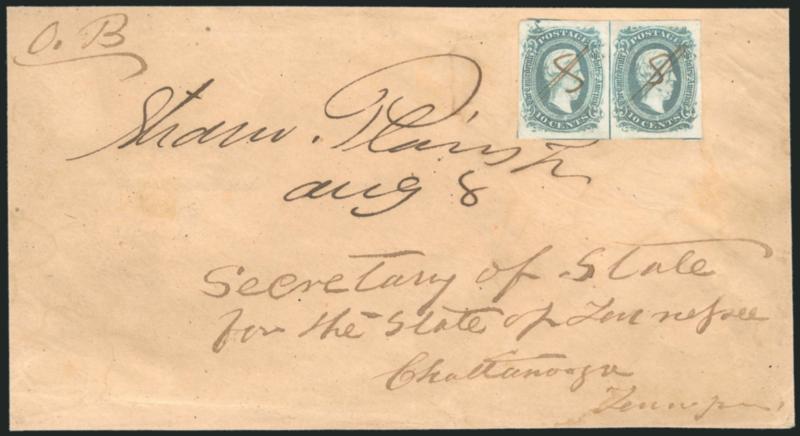 O. B
POSTAGE
The Confederate States of America
10 CENTS
POSTAGE
The Confederate States of America
10 CENTS
8
8
Aug 8
Secretary of State
for the State of Tennessee
Chattanooga